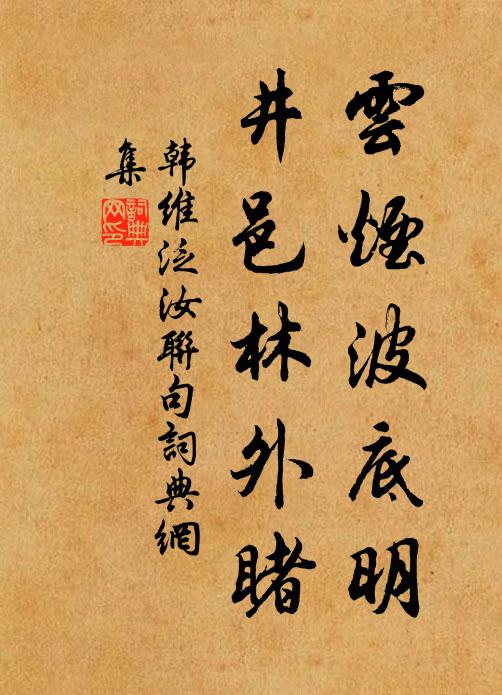 雲煙波底明
井邑林外睹
韩维泛汝聯句詞典網
集
詞典网印